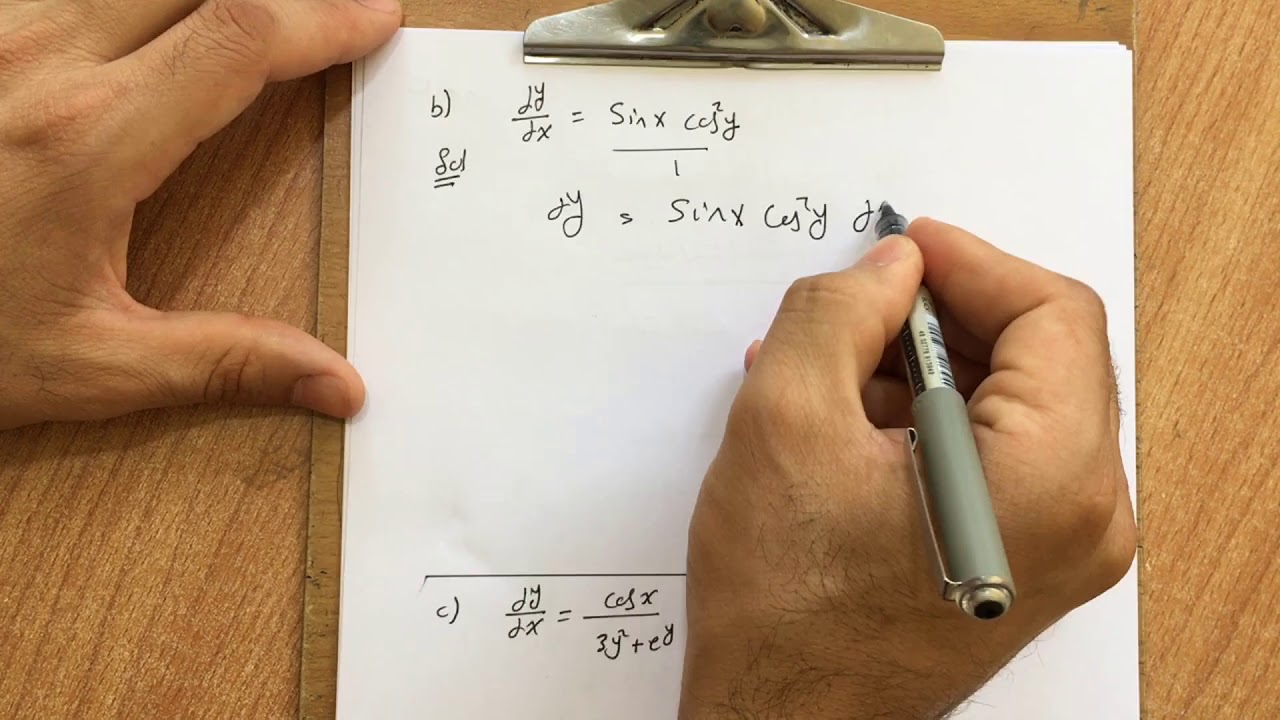 b) dy/dx = Sinx cos²y / 1
Sol
dy = Sinx cos²y d
c) dy/dx = cosx / 3y²+e^y